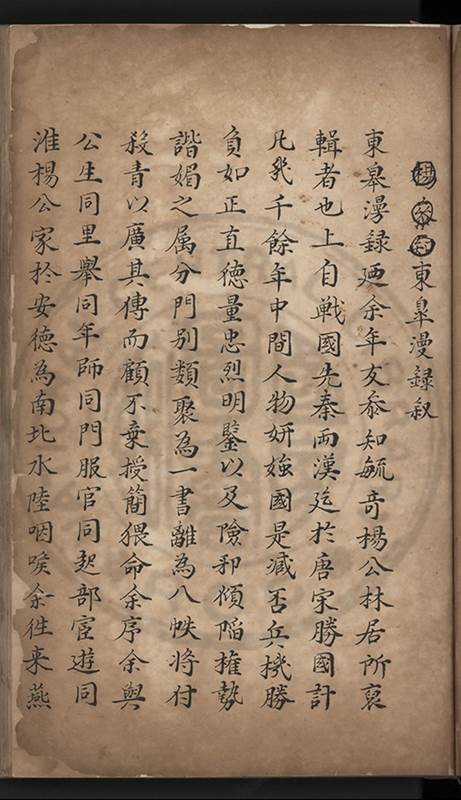 楊參知東皋漫録叙
東皋漫録廼余年友叅知毓竒楊公林居所裒
輯者也上自戰國先秦两漢迄扵唐宋勝國計
凡幾千餘年中間人物妍媸國是臧否兵機勝
負如正直徳量忠烈明鑒以及險邪傾陷權勢
諧媚之属分門别類聚為一書離為八帙將付
殺青以廣其傳而顧不棄授簡猥命余序余與
公生同里舉同年師同門服官同起部宦遊同
淮楊公家扵安德為南北水陸咽喉余徃来燕